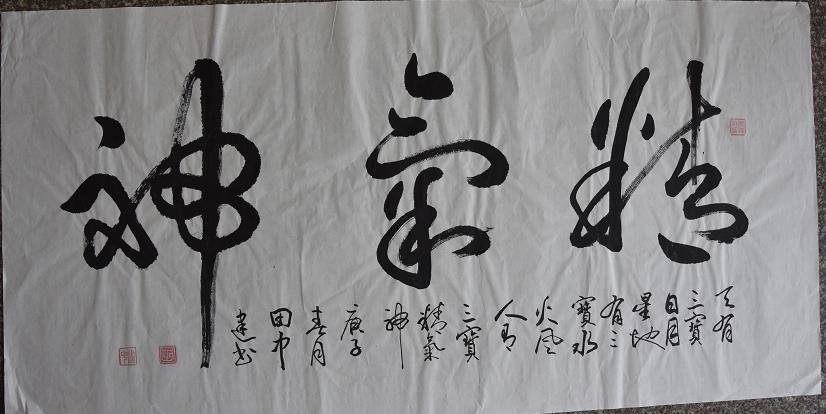 精氣神
天有
三寶
日月
星地
有三
寶水
火風
人有
三寶
精氣
神
庚子
春月
田中
建书